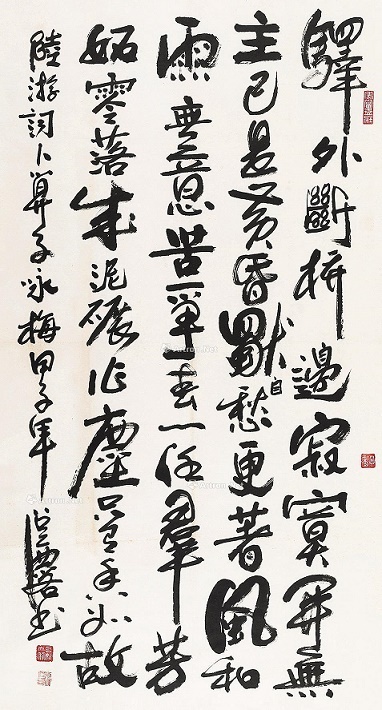 驛外斷橋邊寂寞開無
主已是黃昏獨自愁更著風和
雨無意苦爭春一任羣芳
妬零落成泥碾作塵只有香如故
陸游詞卜算子咏梅甲子年書